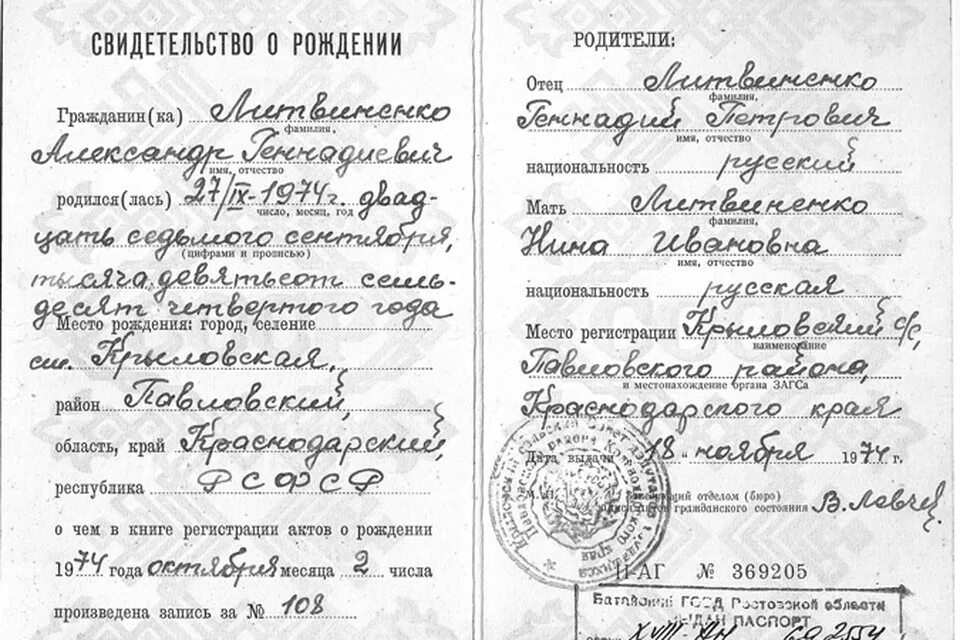 СВИДЕТЕЛЬСТВО О РОЖДЕНИИ
Гражданин(ка) Литвиненко
фамилия,
Александр Геннадиевич
имя, отчество
родился(лась) 27/IX-1974г. двад-
число, месяц, год
цать седьмого сентября,
(цифрами и прописью)
тысяча девятьсот семь-
десят четвертого года
Место рождения: город, селение
ст. Крыловская,
район Павловский,
область, край Краснодарский,
республика РСФСР
о чем в книге регистрации актов о рождении
1974 года октября месяца 2 числа
произведена запись за № 108
РОДИТЕЛИ:
Отец Литвиненко
фамилия,
Геннадий Петрович
имя, отчество
национальность русский
Мать Литвиненко
фамилия,
Нина Ивановна
имя, отчество
национальность русская
Место регистрации Крыловский с/с,
наименование
Павловского района,
и местонахождение органа ЗАГСа
Краснодарского края
Дата выдачи 18 ноября 1974 г.
М. П. Заведующий отделом (бюро)
записи актов гражданского состояния
II-АГ № 369205
Батайский ГОВД Ростовской области
ВЫДАН ПАСПОРТ
XVIII-АН